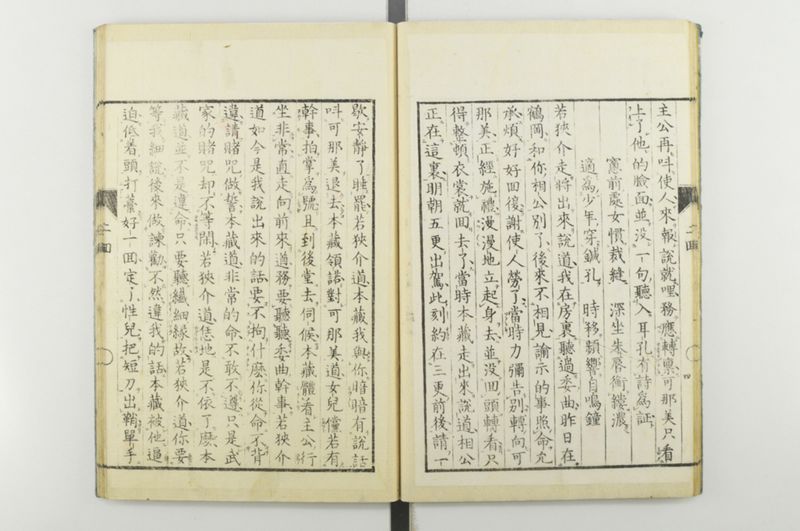 主公再呌使人來報說就哩務應轉禀可那美只看
上了他的臉面並沒一句聽入耳孔有詩爲証
窻前處女慣裁縫　深坐朱唇銜縷濃
適爲少年穿鍼孔　時移頻響自鳴鐘
若狹介走將出來說道我在房裏聽過委曲昨日在
鶴岡和你相公別了後來不相見諭示的事照命允
承煩好好回後謝使人勞了當時力彌告別轉向可
那美正經施禮漫漫地立起身去並沒回頭轉看只
得整頓衣裳就回去了當時本藏走出來說道相公
正在這裏明朝五更出駕此刻約在三更前後請一
歇安靜了睡罷若狹介道本藏我與你暗暗有說話
呌可那美退去本藏領諾對可那美道女兒儻若有
幹事拍掌爲號且到後堂去伺候本藏體看主公行
坐非常直走向前來道務要聽聽委曲幹事若狹介
道如今是我說出來的話要不拘什麽你從命不背
違請賭咒做誓本藏道非常的命不敢不遵只是武
家的賭咒却不等閒若狹介道恁地是不依了麽本
藏道並不是違命只要聽纖細緣故若狹介道你要
等我細說後來做諫勸不然違我的話本藏被他逼
迫低着頭打蕫好一回定了性兒把短刀出鞘單手
二回
四
二回